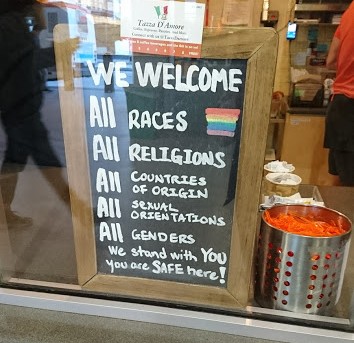 Tazza D'Amore
WE WELCOME
All RACES
All RELIGIONS
All COUNTRIES
OF ORIGIN
All SEXUAL
ORIENTATIONS
All GENDERS
We stand with YOU
you are SAFE here!